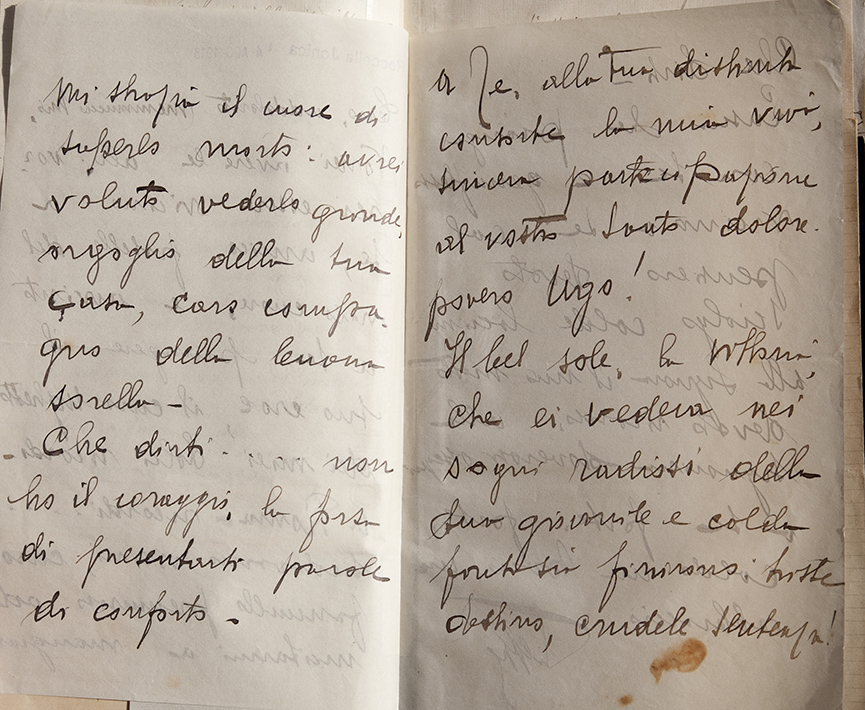 Mi strazia il cuore di
saperlo morto: avrei
voluto vederlo grande,
orgoglio della tua
Casa, caro compa-
gno della buona
sorella -
Che dirti.... non
ho il coraggio, la forza
di presentarti parole
di conforto -
a Te, alla tua distinta
consorte la mia viva,
sincera partecipazione
al vostro santo dolore.
povero Ugo!
Il bel sole, la
che ei vedeva nei
sogni radiosi della
sua giovanile e calda
fantasia finirono: triste
destino, crudele sentenza!